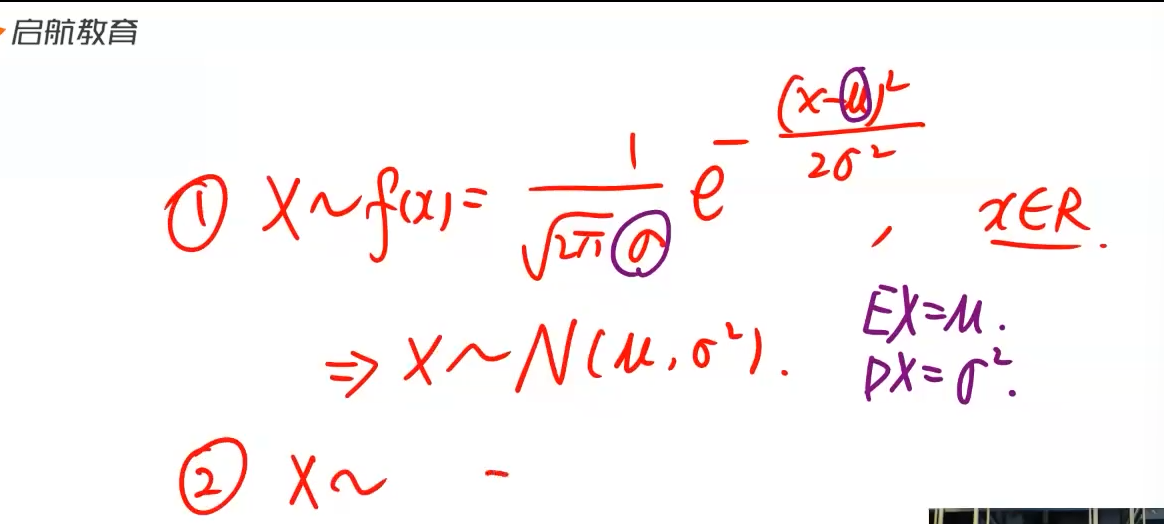 启航教育
① X~f(x)= 1/(√2π σ) e^-(x-μ)²/2σ² , x∈R.
EX=μ.
⇒ X~N(μ,σ²).
DX=σ².
② X~ -